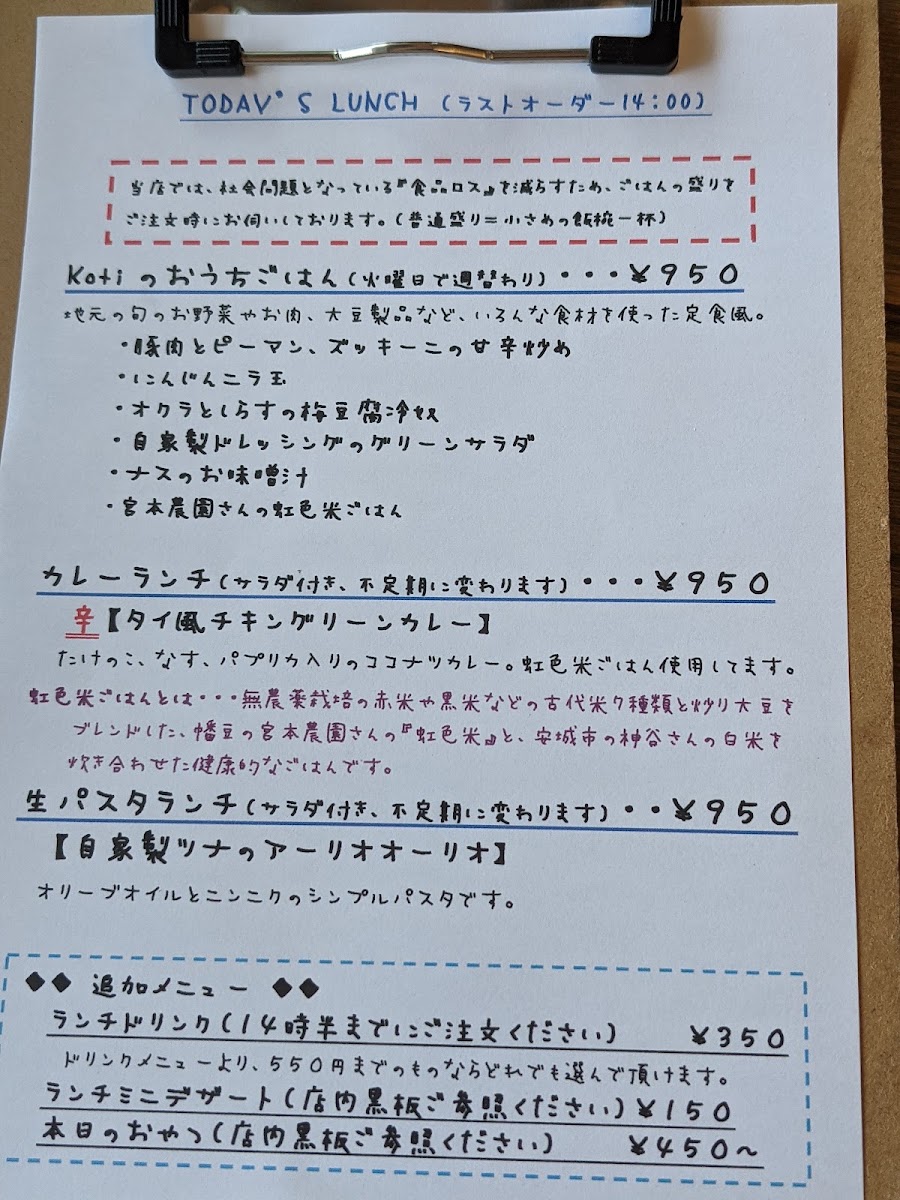 TODAY'S LUNCH (ラストオーダー14:00)
当店では、社会問題となっている『食品ロス』を減らすため、ごはんの盛りを
ご注文時にお伺いしております。(普通盛り=小さめの飯椀一杯)
Kotiのおうちごはん(火曜日で週替わり)・・・¥950
地元の旬のお野菜やお肉、大豆製品など、いろんな食材を使った定食風。
・豚肉とピーマン、ズッキーニの甘辛炒め
・にんじんニラ玉
・オクラとしらすの梅豆腐冷奴
・自家製ドレッシングのグリーンサラダ
・ナスのお味噌汁
・宮本農園さんの虹色米ごはん
カレーランチ(サラダ付き、不定期に変わります)・・・¥950
辛【タイ風チキングリーンカレー】
たけのこ、なす、パプリカ入りのココナツカレー。虹色米ごはん使用してます。
虹色米ごはんとは・・・無農薬栽培の赤米や黒米などの古代米7種類と炒り大豆を
ブレンドした、幡豆の宮本農園さんの『虹色米』と、安城市の神谷さんの白米を
炊き合わせた健康的なごはんです。
生パスタランチ(サラダ付き、不定期に変わります)・・¥950
【自家製ツナのアーリオオーリオ】
オリーブオイルとニンニクのシンプルパスタです。
◆◆ 追加メニュー ◆◆
ランチドリンク(14時半までにご注文ください) ¥350
ドリンクメニューより、550円までのものならどれでも選んで頂けます。
ランチミニデザート(店内黒板ご参照ください)¥150
本日のおやつ(店内黒板ご参照ください) ¥450~